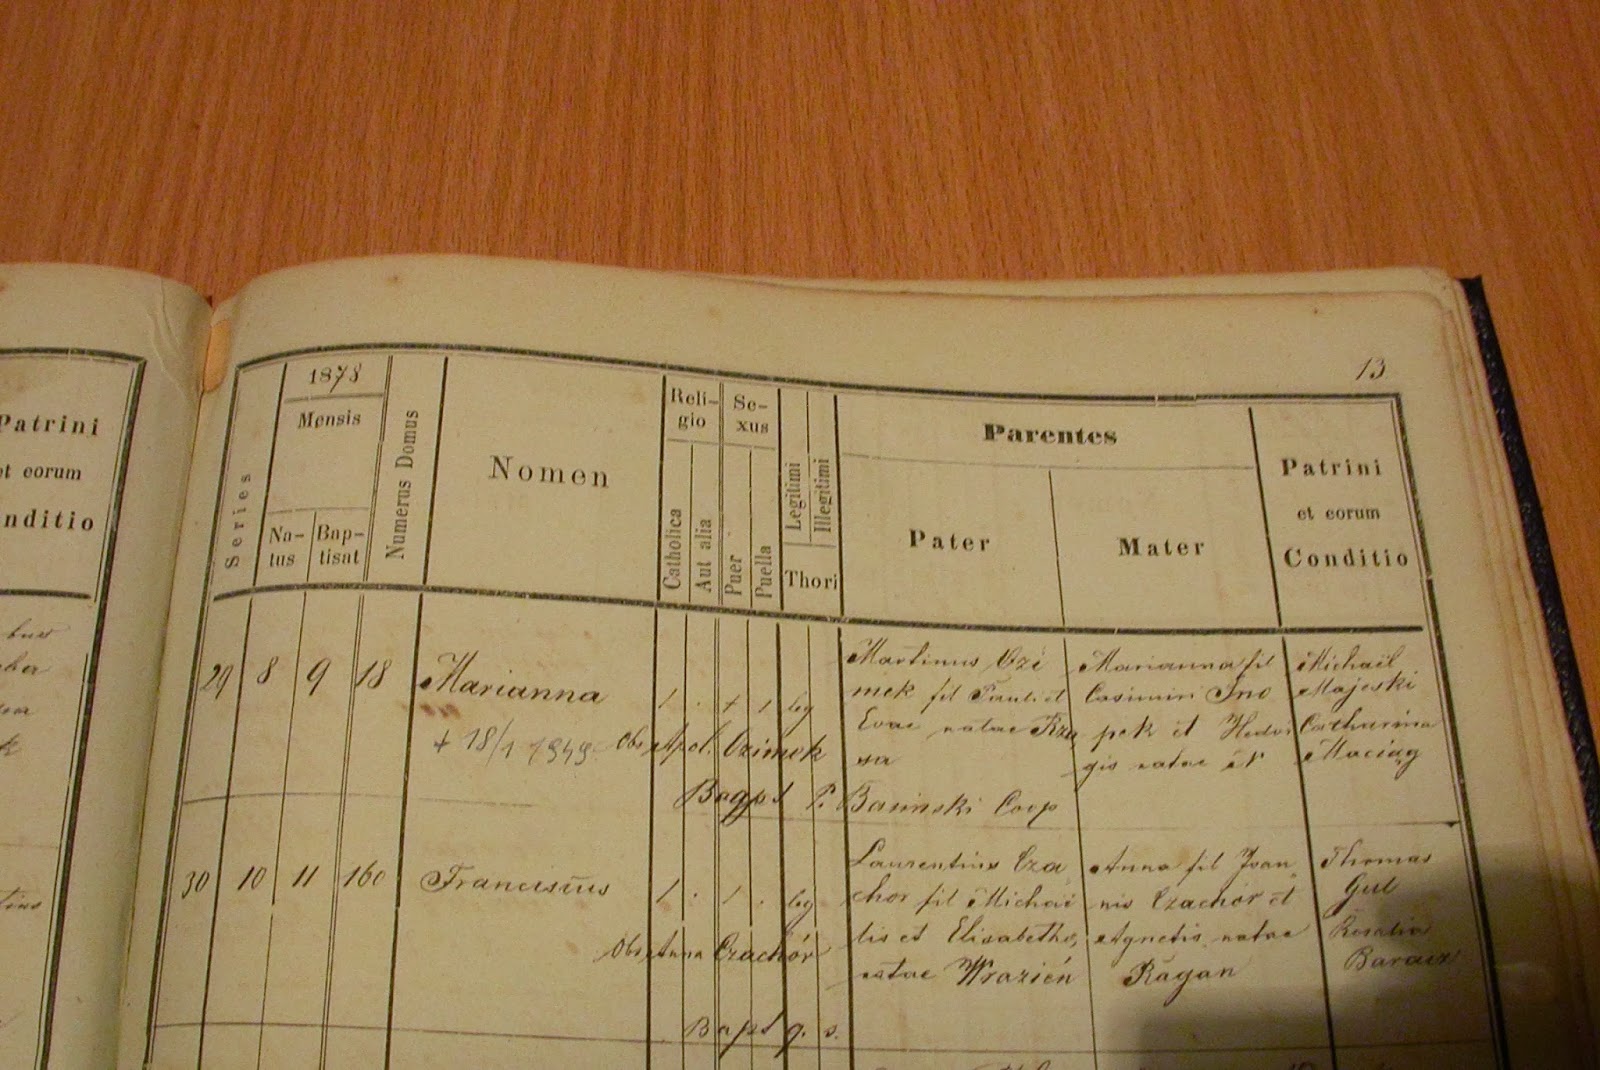 13
Patrini
et eorum
Conditio
Series
1878
Mensis
Na-
tus
Bap-
tisat
Numerus Domus
Nomen
Reli-
gio
Catholica
Aut alia
Se-
xus
Puer
Puella
Legitimi
Illegitimi
Thori
Parentes
Pater
Mater
Patrini
et eorum
Conditio
29 8 9 18 Marianna leg
+ 18/1 1949 Obs Apol. Ozimek
Martinus Ozi
mek fil Pauli et
Evae natae Rza
sa
Marianna fil
Casimiri
pek et Hedvi
gis natae
Michaël
Majeski
Catharina
Maciąg
Bapt P. Basinski Coop
30 10 11 160 Franciscus leg
Obs Anna Czachór
Laurentius Cza
chor fil Michaë
lis et Elisabethe,
natae Wrazién
Anna fil Joan
nis Czachor et
Agnetis natae
Ragan
Thomas
Gul
Rosalia
Bapt q. s.